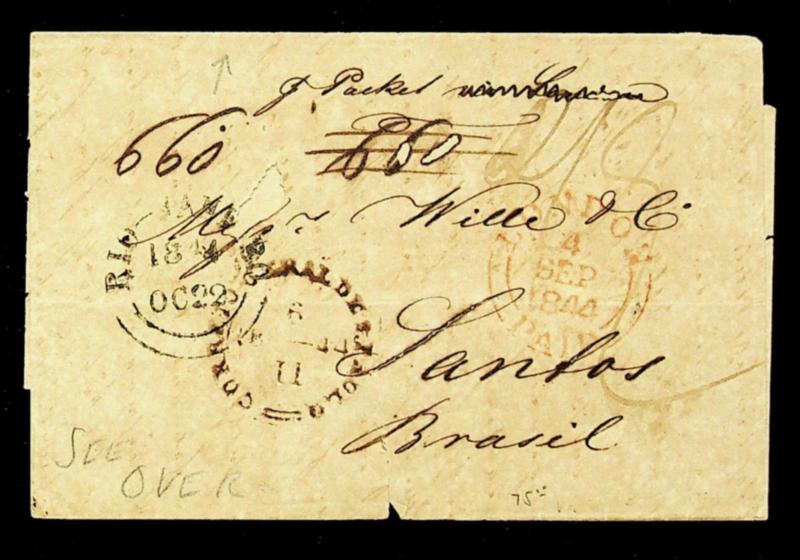 p Packet
660 660
2/8
Messrs Wille & Co
Santos
Brasil
RIO JANE
1844
OC 22
CORREIO GERAL DE S. PAOLO
6
11 44
LONDON
4
SEP
1844
PAID
SEE
OVER
75